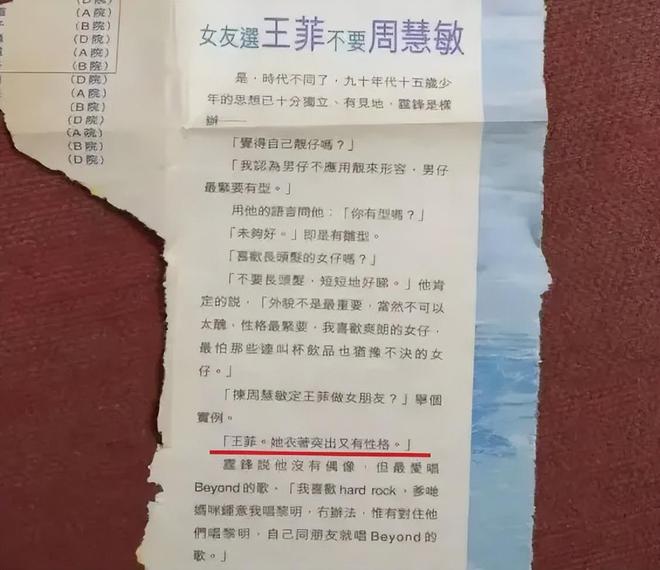 (D院)
(A院)
(D院)
(A院)
(B院)
(D院)
(A院)
(B院)
(D院)
(A院)
(B院)
(D院)
女友選王菲不要周慧敏
是，時代不同了，九十年代十五歲少
年的思想已十分獨立、有見地，霆鋒是樣
辦——
「覺得自己靚仔嗎？」
「我認為男仔不應用靚來形容，男仔
最緊要有型。」
用他的語言問他：「你有型嗎？」
「未夠好。」即是有雛型。
「喜歡長頭髮的女仔嗎？」
「不要長頭髮，短短地好睇。」他肯
定的説，「外貌不是最重要，當然不可以
太醜，性格最緊要，我喜歡爽朗的女仔，
最怕那些連叫杯飲品也猶豫不決的女
仔。」
「揀周慧敏定王菲做女朋友？」舉個
實例。
「王菲。她衣著突出又有性格。」
霆鋒説他沒有偶像，但最愛唱
Beyond的歌。「我喜歡hard rock，爹哋
媽咪鍾意我唱黎明，冇辦法，惟有對住他
們唱黎明，自己同朋友就唱Beyond的
歌。」